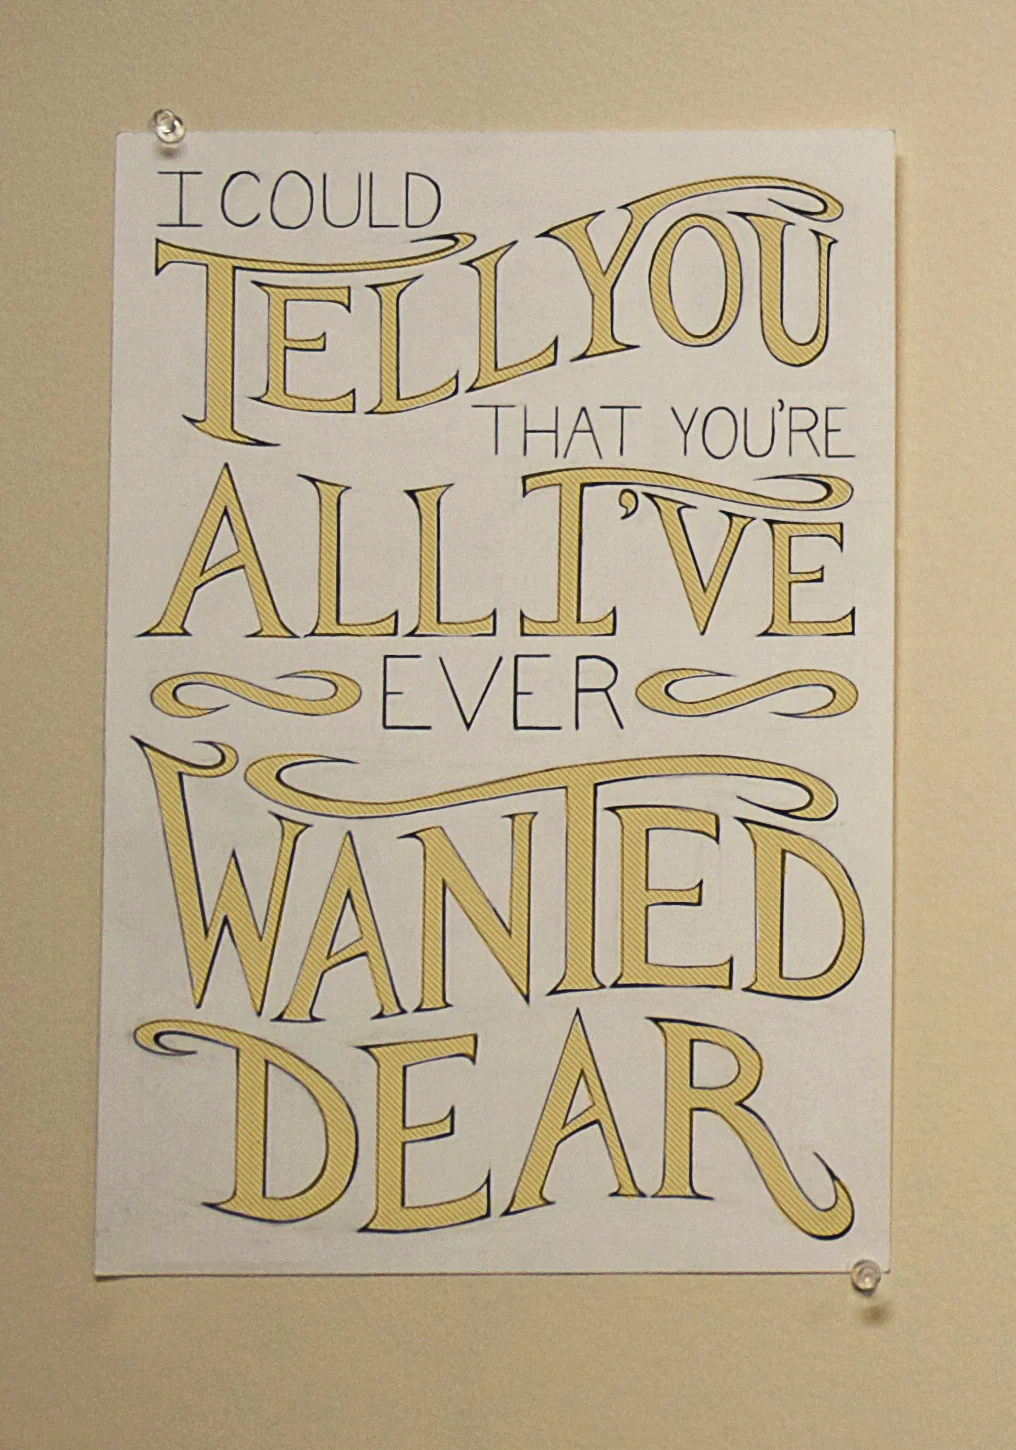 I COULD
TELL YOU
THAT YOU'RE
ALL I'VE
EVER
WANTED
DEAR